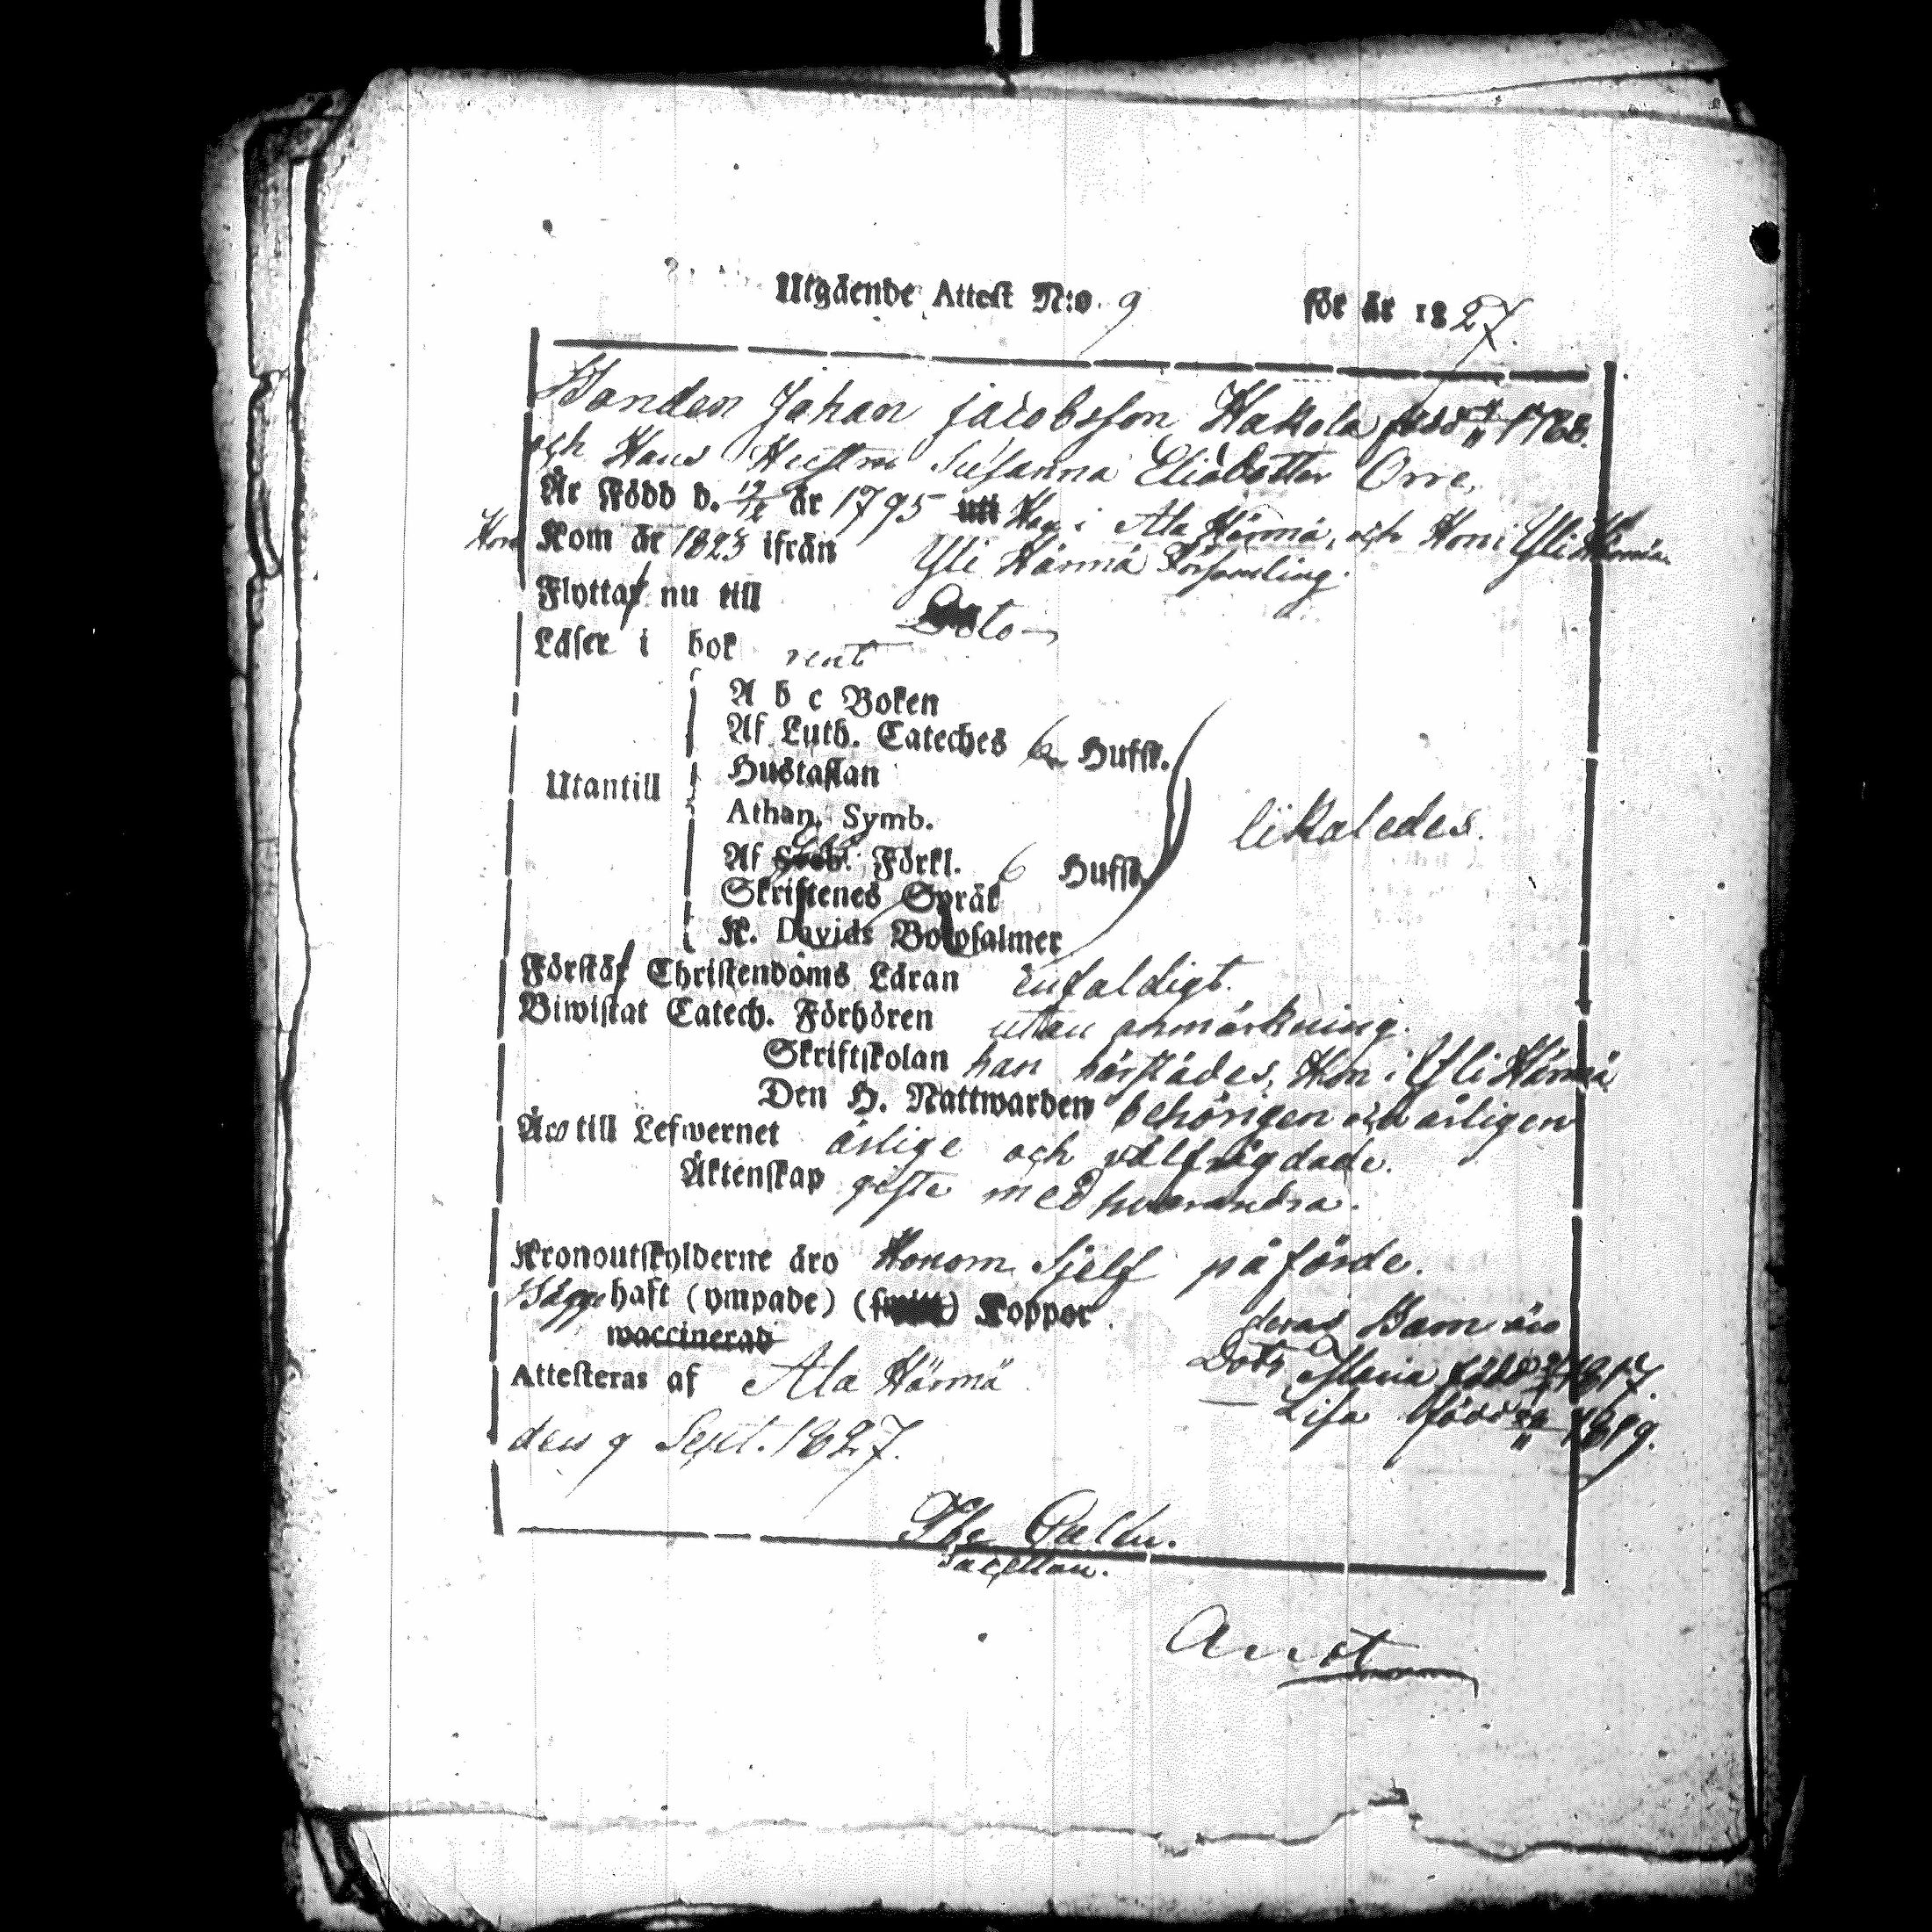 Utgående Attest N:o 9 för år 1827.
Bonden Johan Jacobsson Hakola född 1768.
och Hans Hustru Susanna Eliædotter Orre,
Är Född d. 19/12 år 1795 utti Han i Ala Härmä, och Hon i Ylihärmä
Hon Kom år 1823 ifrån Yli Härmä Församling.
Flytta nu till Dito
Läser i bok rent
A b c Boken
Af Luth. Cateches 6 Hufst.
Hustaflan
Utantill
Athan. Symb.
likaledes.
Af Förkl. 6 Hufst.
Skriftenes Språk
K. Davids Botpsalmer
Förstå Christendoms Läran enfaldigt.
Biwistat Catech. Förhören uttan anmärkning.
Skriftskolan han härstädes, Hon i Yli Härmä
Den H. Nattwarden behörigen och årligen
Äro till Lefwernet ärlige och välfrägdade.
Äktenskap gifte med hvarandra.
Kronoutskylderne äro Honom Sjelf påförde.
Bägge haft (ympade) Koppor. deras Barn äro
waccinerad
Attesteras af Ala Härmä Dottr Maria född 1817.
— Lisa född 1819.
den 9 Sept. 1827.
Sacellan.